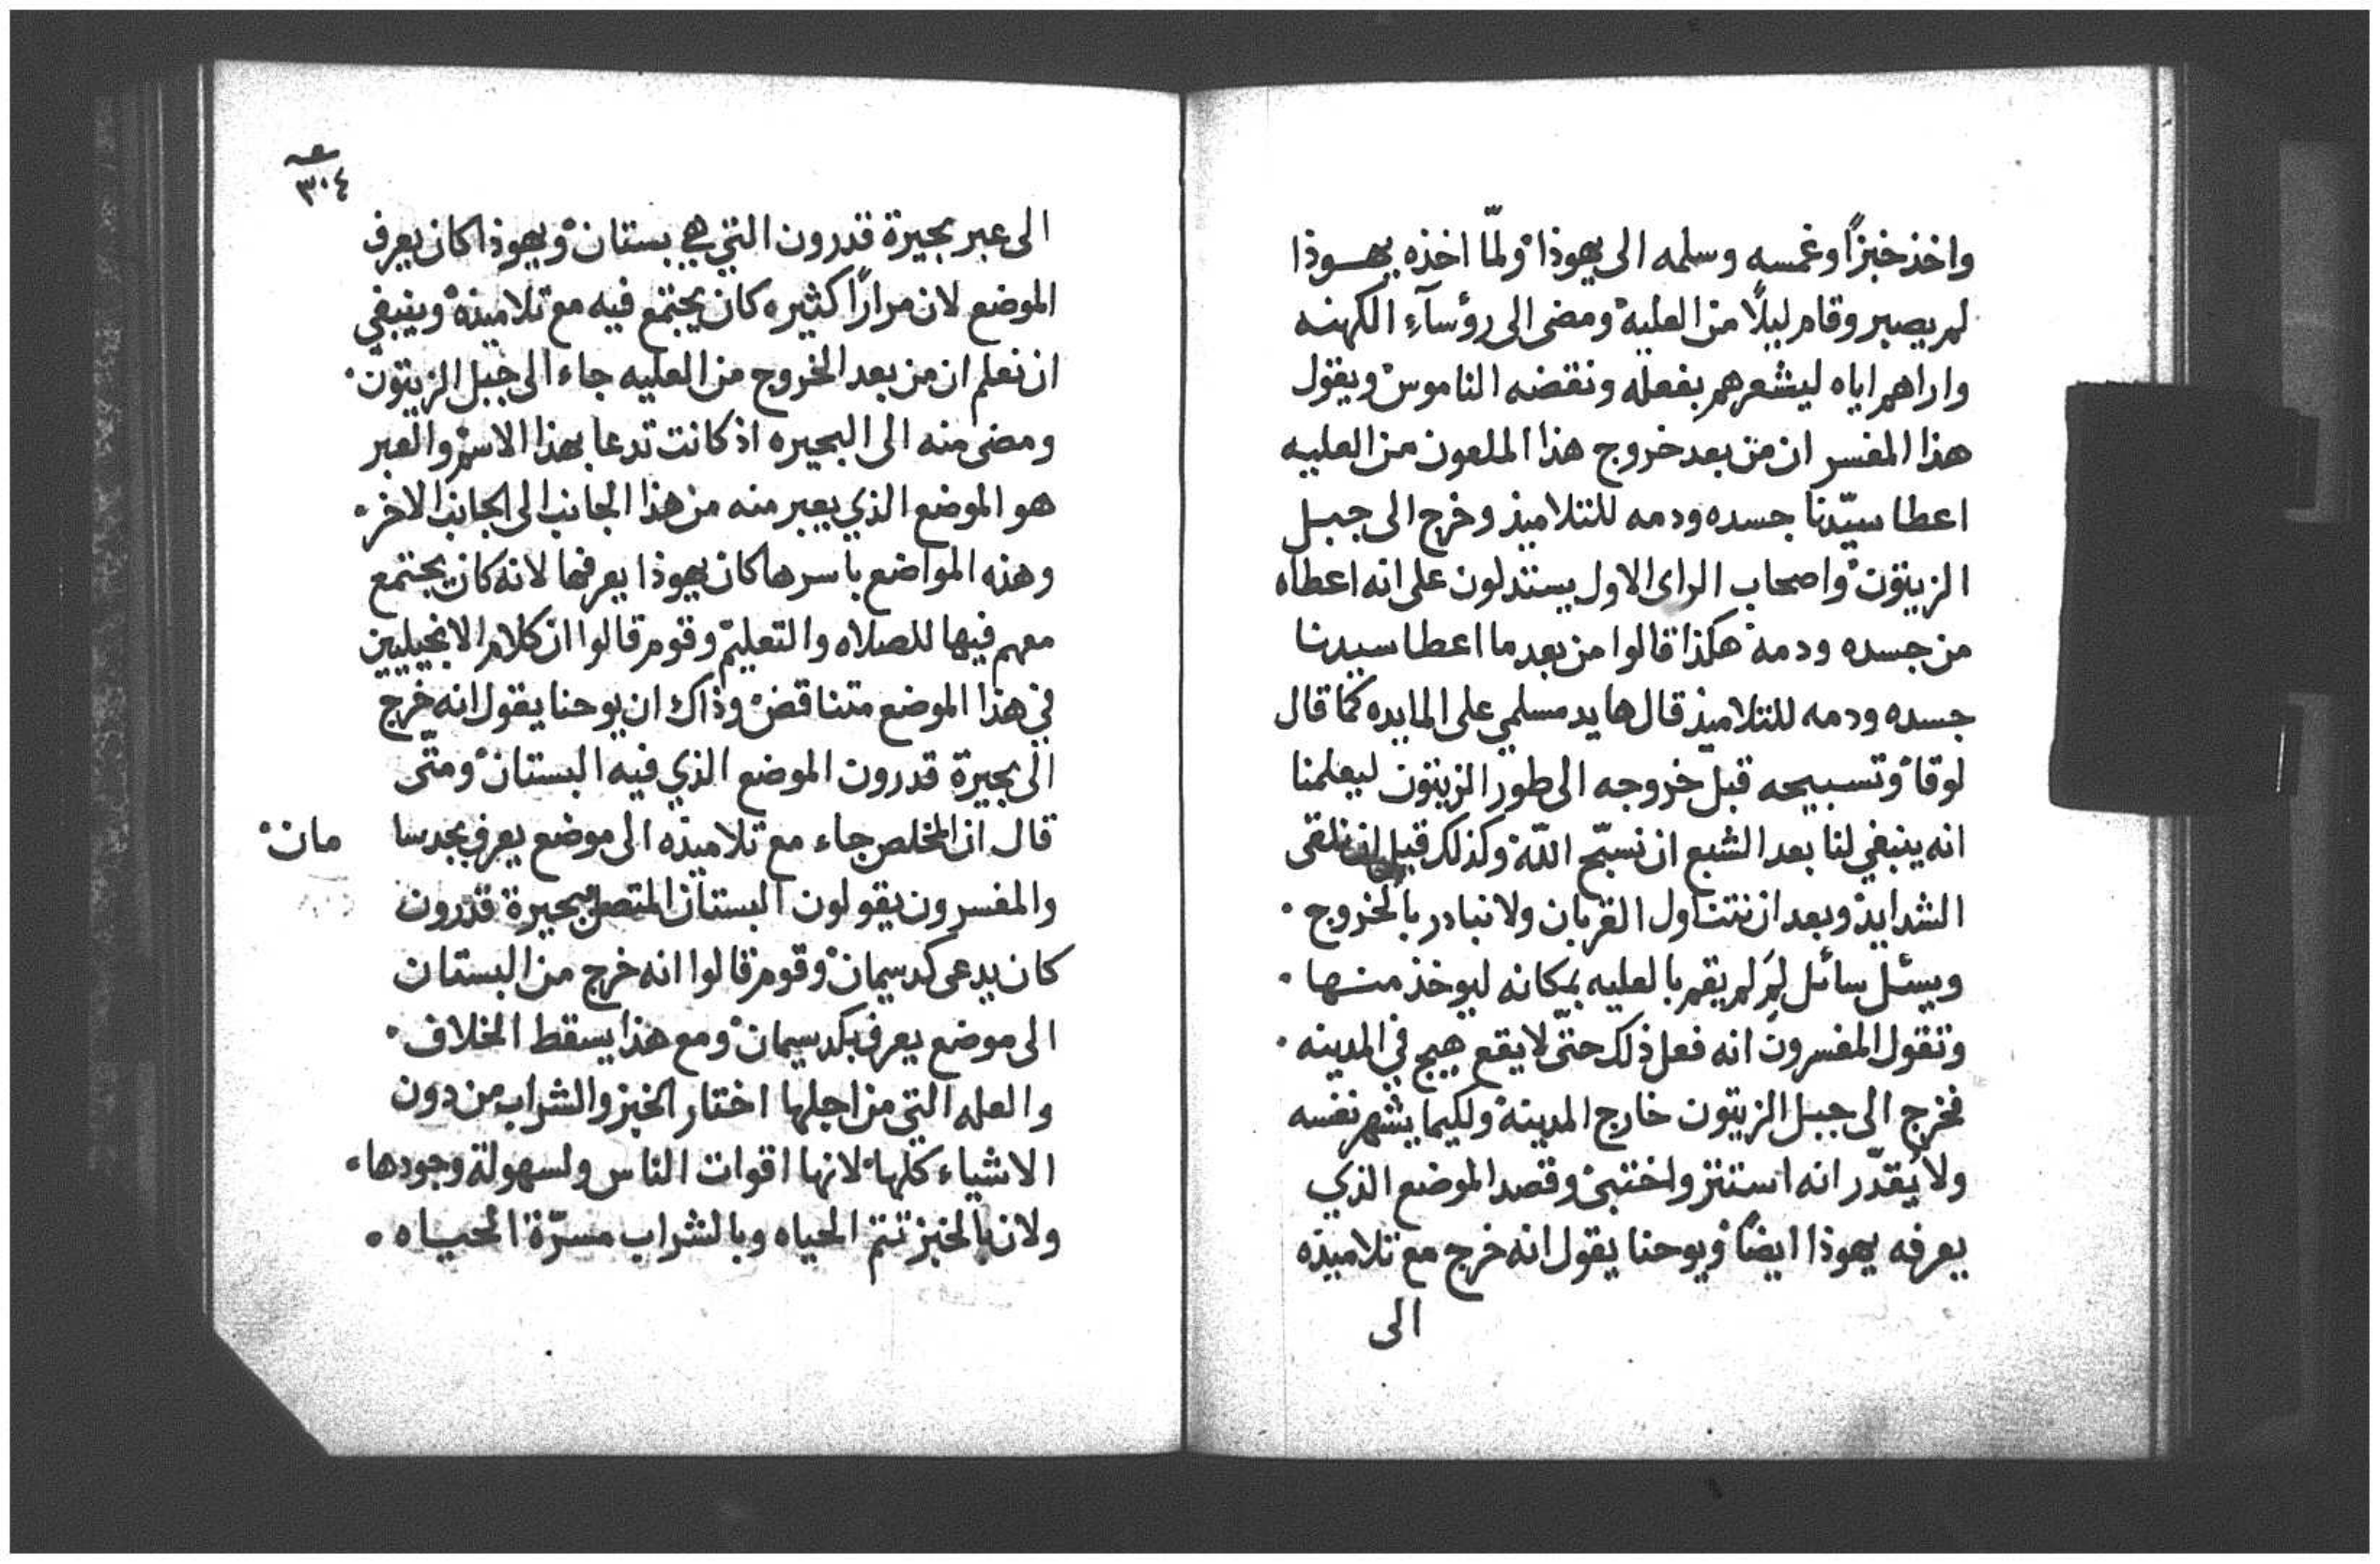 واخذ خبزًا وغمسه وسلمه الى يهوذا ولمّا اخذه يهوذا
لم يصبر وقام ليلًا من العليه ومضى الى رؤسآءِ الكهنه
واراهم اياه ليشعرهم بفعله ونقضه الناموس ويقول
هذا المفسر ان من بعد خروج هذا الملعون من العليه
اعطا سيّدنا جسده ودمه للتلاميذ وخرج الى جبل
الزيتون واصحاب الراى الاول يستدلون على انه اعطاه
من جسده ودمه هكذا قالوا من بعد ما اعطا سيدنا
جسده ودمه للتلاميذ قال ها يد مسلمي على المايده كما قال
لوقا وتسبيحه قبل خروجه الى طور الزيتون ليعلمنا
انه ينبغي لنا بعد الشبع ان نسبّح اللّه وكذلك قبل ان نلقى
الشدايد وبعد ان نتناول القربان ولا نبادر بالخروج ٠
ويسئل سائل لِمَ لم يقم بالعليه بمكانه ليوخذ منها ٠
وتقول المفسرون انه فعل ذلك حتّى لا يقع هيج في المدينه ٠
فخرج الى جبل الزيتون خارج المدينة ولكيما يشهر نفسه
ولا يُقدّر انه استتر واختبئ وقصد الموضع الذي
يعرفه يهوذا ايضًا ويوحنا يقول انه خرج مع تلاميذه
الى
٣٠٤
الى عبر بحيرة قدرون التي هي بستان ويهوذا كان يعرف
الموضع لان مرارًا كثيره كان يجتمع فيه مع تلاميذه وينبغي
ان نعلم ان من بعد الخروج من العليه جاء الى جبل الزيتون ٠
ومضى منه الى البحيره اذ كانت تدعا بهذا الاسم والعبر
هو الموضع الذي يعبر منه من هذا الجانب الى الجانب الاخر ٠
وهذه المواضع باسرها كان يهوذا يعرفها لانه كان يجتمع
معهم فيها للصلاه والتعليم وقوم قالوا ان كلام الانجيليين
في هذا الموضع متناقض وذاك ان يوحنا يقول انه خرج
الى بحيرة قدرون الموضع الذي فيه البستان ومتّى
قال ان المخلص جاء مع تلاميذه الى موضع يعرف بجدسا مان
والمفسرون يقولون البستان المتصل ببحيرة قدرون
كان يدعى كدسيمان وقوم قالوا انه خرج من البستان
الى موضع يعرف بكدسيمان ومع هذا يسقط الخلاف ٠
والعله التي من اجلها اختار الخبز والشراب من دون
الاشياء كلها لانها اقوات الناس ولسهولة وجودها ٠
ولان بالخبز تتم الحياه وبالشراب مسرّة الحياه ٠